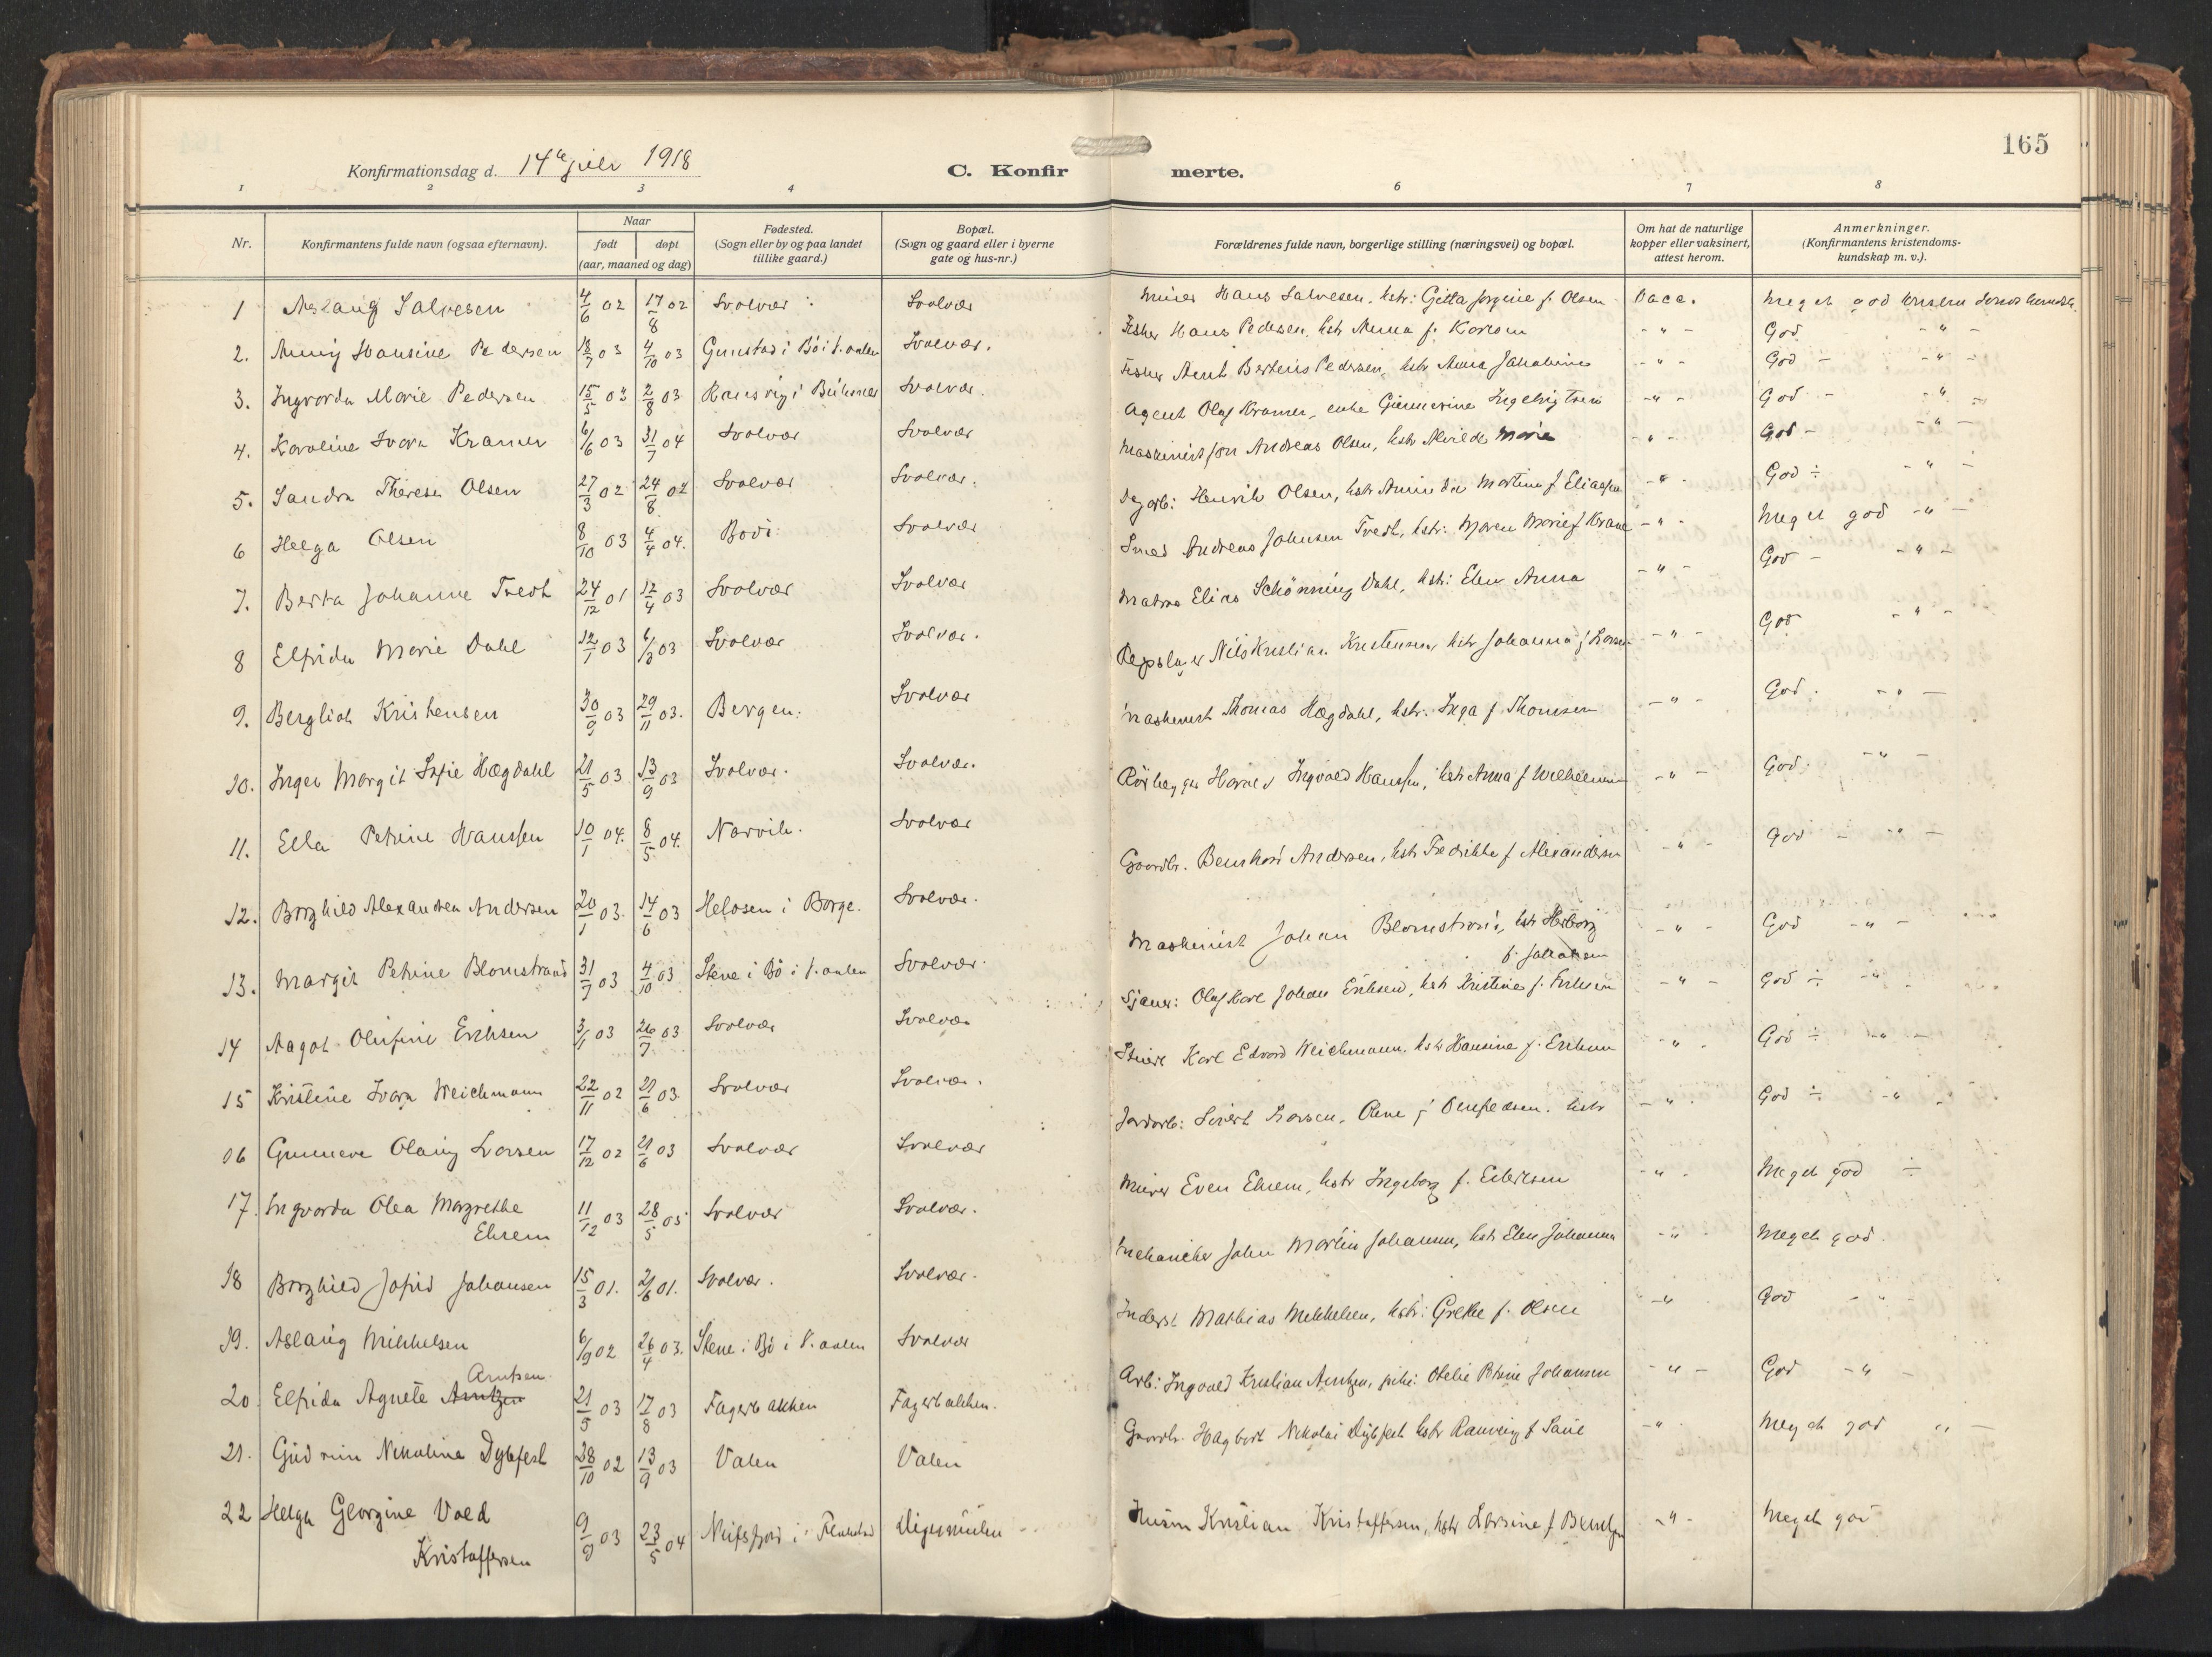 165
Konfirmationsdag d. 14de juli 1918
C. Konfirmerte.
1 2 3 4 6 7 8
Nr.
Konfirmantens fulde navn (ogsaa efternavn).
Naar
født døpt
(aar, maaned og dag)
Fødested.
(Sogn eller by og paa landet
tillike gaard.)
Bopæl.
(Sogn og gaard eller i byerne
gate og hus-nr.)
Forældrenes fulde navn, borgerlige stilling (næringsvei) og bopæl.
Om hat de naturlige
kopper eller vaksinert,
attest herom.
Anmerkninger.
(Konfirmantens kristendoms-
kundskap m. v.).
1 Aslaug Salvesen 4/6 02 17/8 02 Svolvær Svolvær Murer Hans Salvesen, hstr: Gitta Jorgine f. Olsen Vacc. Meget god
2. Hansine Pedersen 18/7 03 4/10 03 i Bø i V.aalen Svolvær. Fisker Hans Pedersen, hstr Anna f. -"- God -"-
3. Ingvorda Marie Pedersen 15/5 03 2/8 03 Svolvær Fisker Arnt Pedersen, hstr Anna Jakobine -"- God -"-
4. Karoline Ivara Kramer 6/6 03 31/7 04 Svolvær Svolvær Agent Olaf Kramer, enke -"- God -"-
5. Sandra Theresa Olsen 27/3 02 24/8 02 Svolvær Svolvær. Maskinist Jon Andreas Olsen, hstr Alvilde Marie -"- God -"-
6 Helga Olsen 8/10 03 4/4 04. Bodö Svolvær Dagarb: Henrik Olsen, hstr Martine f. -"- God ÷ -"-
7. Berta Johanne Tvedt 24/12 01 12/4 03 Svolvær Svolvær Smed Andreas Johnsen Tvedt, hstr: Maren Marie f Krane -"- Meget god -"-
8 Elfrida Marie Dahl 12/1 03 Svolvær Svolvær. Matros Elias Schönning Dahl, hstr: Elen Anna -"- God -"-
9. Bergliot Kristensen 30/9 03 29/11 03. Bergen. Svolvær Repslager Nils Kristian Kristensen, hstr Johanna f -"- God -"-
10. Inger Margit Sofie Hægdahl 21/5 03 13/9 03 Svolvær. Svolvær. Maskinist Thomas Hægdahl, hstr. Inga f. Thomsen -"- God. -"-
11. Ella Petrine Hanssen 10/1 04. 8/5 04. Narvik. Svolvær Ingvald Hanssen, hstr Anna f -"- God. -"-
12. Borghild Alexandra Andersen 20/1 03. 14/6 03 i Borge. Svolvær. Gaardbr. Andersen, hstr Fredrikke f. -"- God -"-
13. Margit Petrine Blomstrand 31/7 03 4/10 03 Stene i Bø i V.aalen Svolvær. Maskinist Johan Blomstrand, hstr Herborg
-"- God -"-
14 Aagot Olufine Eriksen 3/1 03 26/7 03 Svolvær Svolvær Sjauer: Olaf Karl Johan Eriksen, hstr Kristine f. -"- God ÷ -"-
15 Kristine Ivara Weichmann 22/11 02 21/6 03 Svolvær Svolvær. Karl Edvard Weichmann. hstr Hansine f. -"- God ÷ -"-
06 Olaug Larsen 17/12 02 21/6 03 Svolvær Svolvær Jordarb: Sivert Larsen, hstr -"- God ÷ -"-
17. Ingvorda Olea Margrethe
Ehrem 11/12 03 28/5 05 Svolvær Svolvær. Murer Even Ehrem, hstr Ingeborg f. -"- Meget god ÷
18 Borghild Johansen 15/3 01. 2/6 01. Svolvær. Svolvær. Mekaniker John Martin Johansen, hstr Elen Johanna -"- Meget god.
19. Aslaug Mikkelsen 6/9 02 26/4 03. Stene i Bø i V.aalen Svolvær Inderst Mathias Mikkelsen, hstr: Grethe f. Olsen -"- God -"-
Arntsen
20 Elfrida Agnete Arntzen 21/5 03 17/8 03 Fagerbakken Fagerbakken. Arb: Ingvald Kristian Arntzen, pike: Otelie Petrine Johansen -"- God -"-
21. Gudrun Nikoline Dybfest 28/10 02 13/9 03 Valen Valen Gaardbr. Hagbart Nikolai Dybfest hstr f -"- Meget god -"-
22 Helga Georgine Vold
Kristoffersen 9/9 03 23/5 04 i Flakstad Digermulen Kristian Kristoffersen, hstr Larsine f -"- Meget god